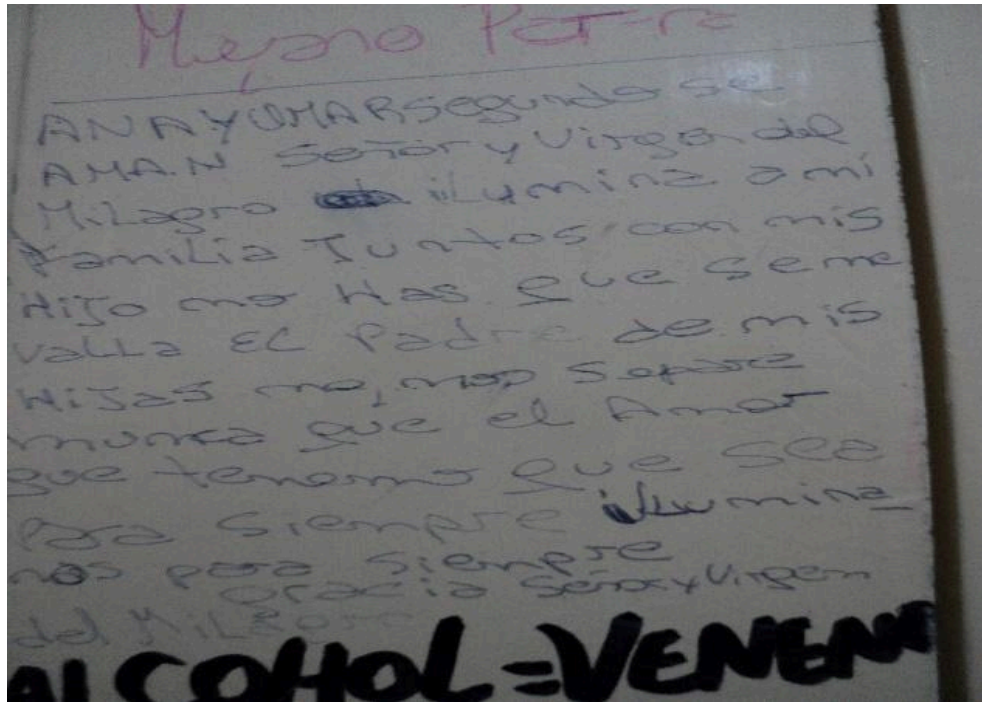 ANA Y OMAR Segundo se
AMA.N Señor y Virgen del
Milagro iLumina a mi
FamiLia Juntos con mis
HiJo no Has que seme
VaLLa EL Padre de mis
HiJas no, nos Separe
nunca que el Amor
que tenemo que sea
Para Siempre iLumina
nos para Siempre
Gracia Señor y Virgen
del MiLagro
ALCOHOL=VENENO